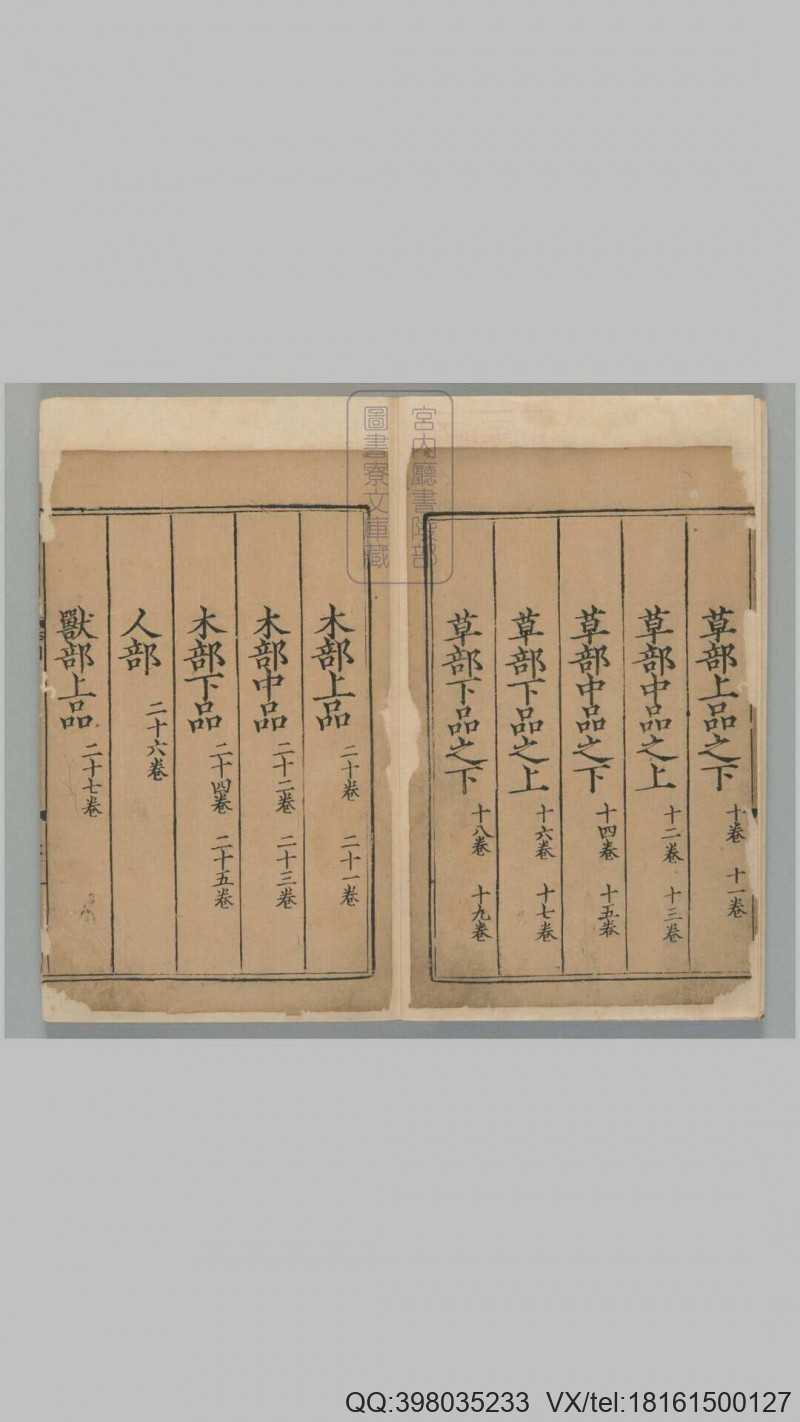 草部上品之下 十卷 十一卷
草部中品之上 十二卷 十三卷
草部中品之下 十四卷 十五卷
草部下品之上 十六卷 十七卷
草部下品之下 十八卷 十九卷
宮內廳書陵部
圖書寮文庫藏
木部上品 二十卷 二十一卷
木部中品 二十二卷 二十三卷
木部下品 二十四卷 二十五卷
人部 二十六卷
獸部上品 二十七卷
QQ:398035233 VX/tel:18161500127